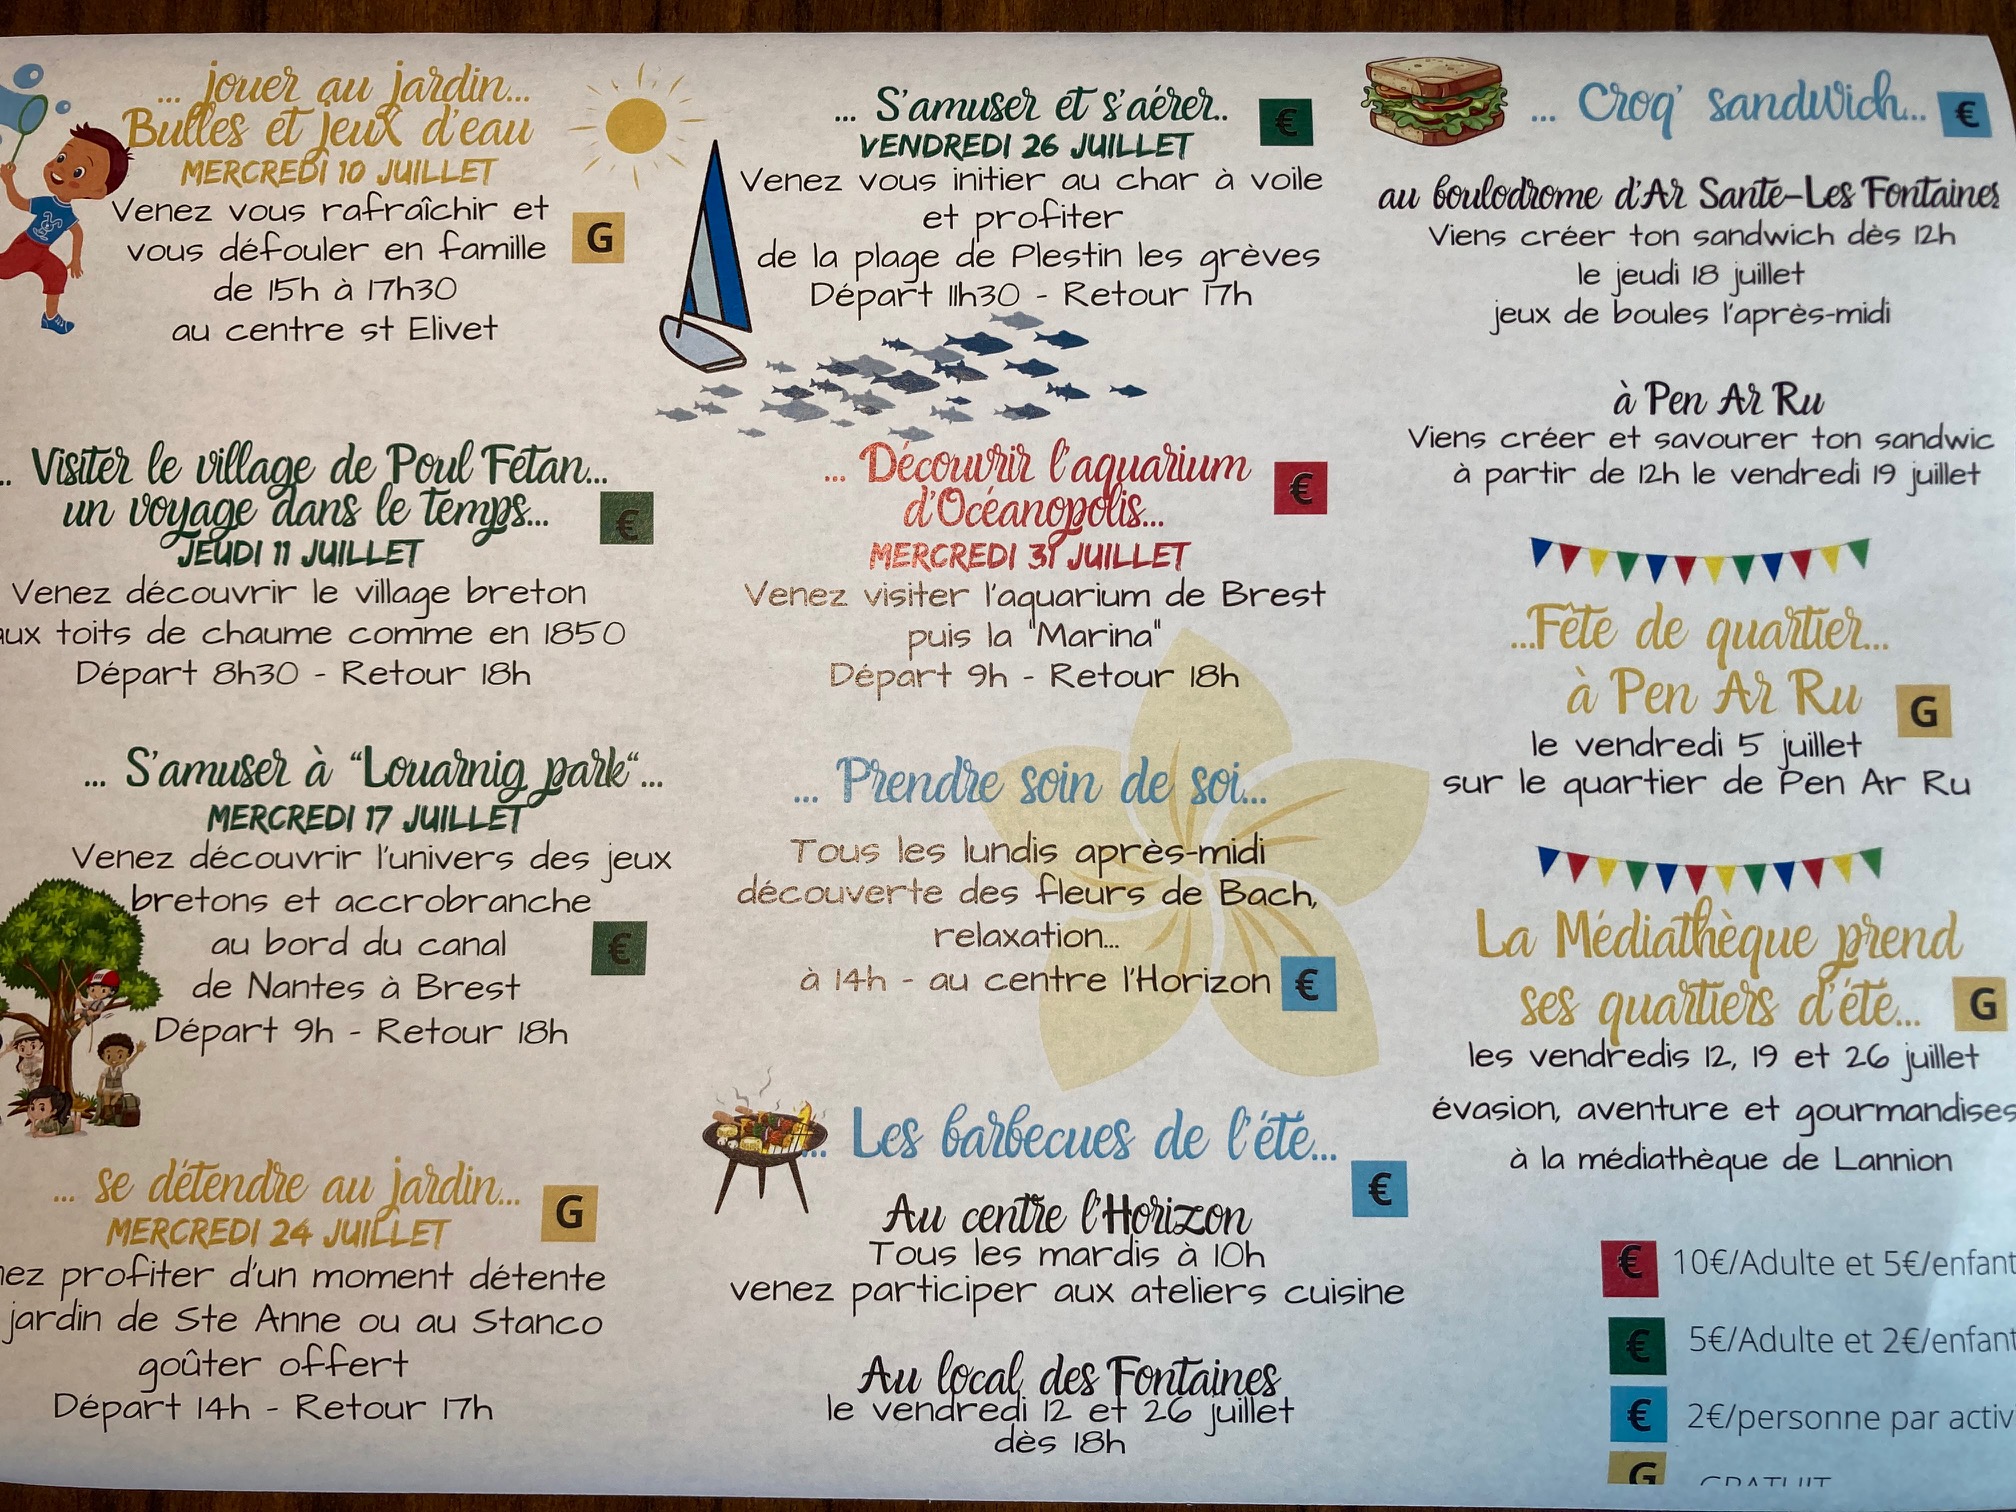 ... jouer au jardin...
Bulles et jeux d'eau
MERCREDI 10 JUILLET
Venez vous rafraîchir et
vous défouler en famille
G
de 15h à 17h30
au centre st Elivet
.. Visiter le village de Poul Fetan...
un voyage dans le temps...
€
JEUDI 11 JUILLET
Venez découvrir le village breton
aux toits de chaume comme en 1850
Départ 8h30 - Retour 18h
... S'amuser à "Louarnig park"...
MERCREDI 17 JUILLET
Venez découvrir l'univers des jeux
bretons et accrobranche
au bord du canal
€
de Nantes à Brest
Départ 9h - Retour 18h
... se détendre au jardin...
G
MERCREDI 24 JUILLET
profiter d'un moment détente
jardin de Ste Anne ou au Stanco
goûter offert
Départ 14h - Retour 17h
... S'amuser et s'aérer..
€
VENDREDI 26 JUILLET
Venez vous initier au char à voile
et profiter
de la plage de Plestin les grèves
Départ 11h30 - Retour 17h
... Découvrir l'aquarium
€
d'Océanopolis...
MERCREDI 31 JUILLET
Venez visiter l'aquarium de Brest
puis la "Marina"
Départ 9h - Retour 18h
... Prendre soin de soi...
Tous les lundis après-midi
découverte des fleurs de Bach,
relaxation...
à 14h - au centre l'Horizon
€
... Les barbecues de l'été...
€
Au centre l'Horizon
Tous les mardis à 10h
venez participer aux ateliers cuisine
Au local des Fontaines
le vendredi 12 et 26 juillet
dès 18h
... Croq' sandwich...
€
au boulodrome d'Ar Sante-Les Fontaines
Viens créer ton sandwich dès 12h
le jeudi 18 juillet
jeux de boules l'après-midi
à Pen Ar Ru
Viens créer et savourer ton sandwic
à partir de 12h le vendredi 19 juillet
...Fête de quartier...
à Pen Ar Ru
G
le vendredi 5 juillet
sur le quartier de Pen Ar Ru
La Médiathèque prend
ses quartiers d'été...
G
les vendredis 12, 19 et 26 juillet
évasion, aventure et gourmandises
à la médiathèque de Lannion
€ 10€/Adulte et 5€/enfant
€ 5€/Adulte et 2€/enfant
€ 2€/personne par activ
G GRATUIT